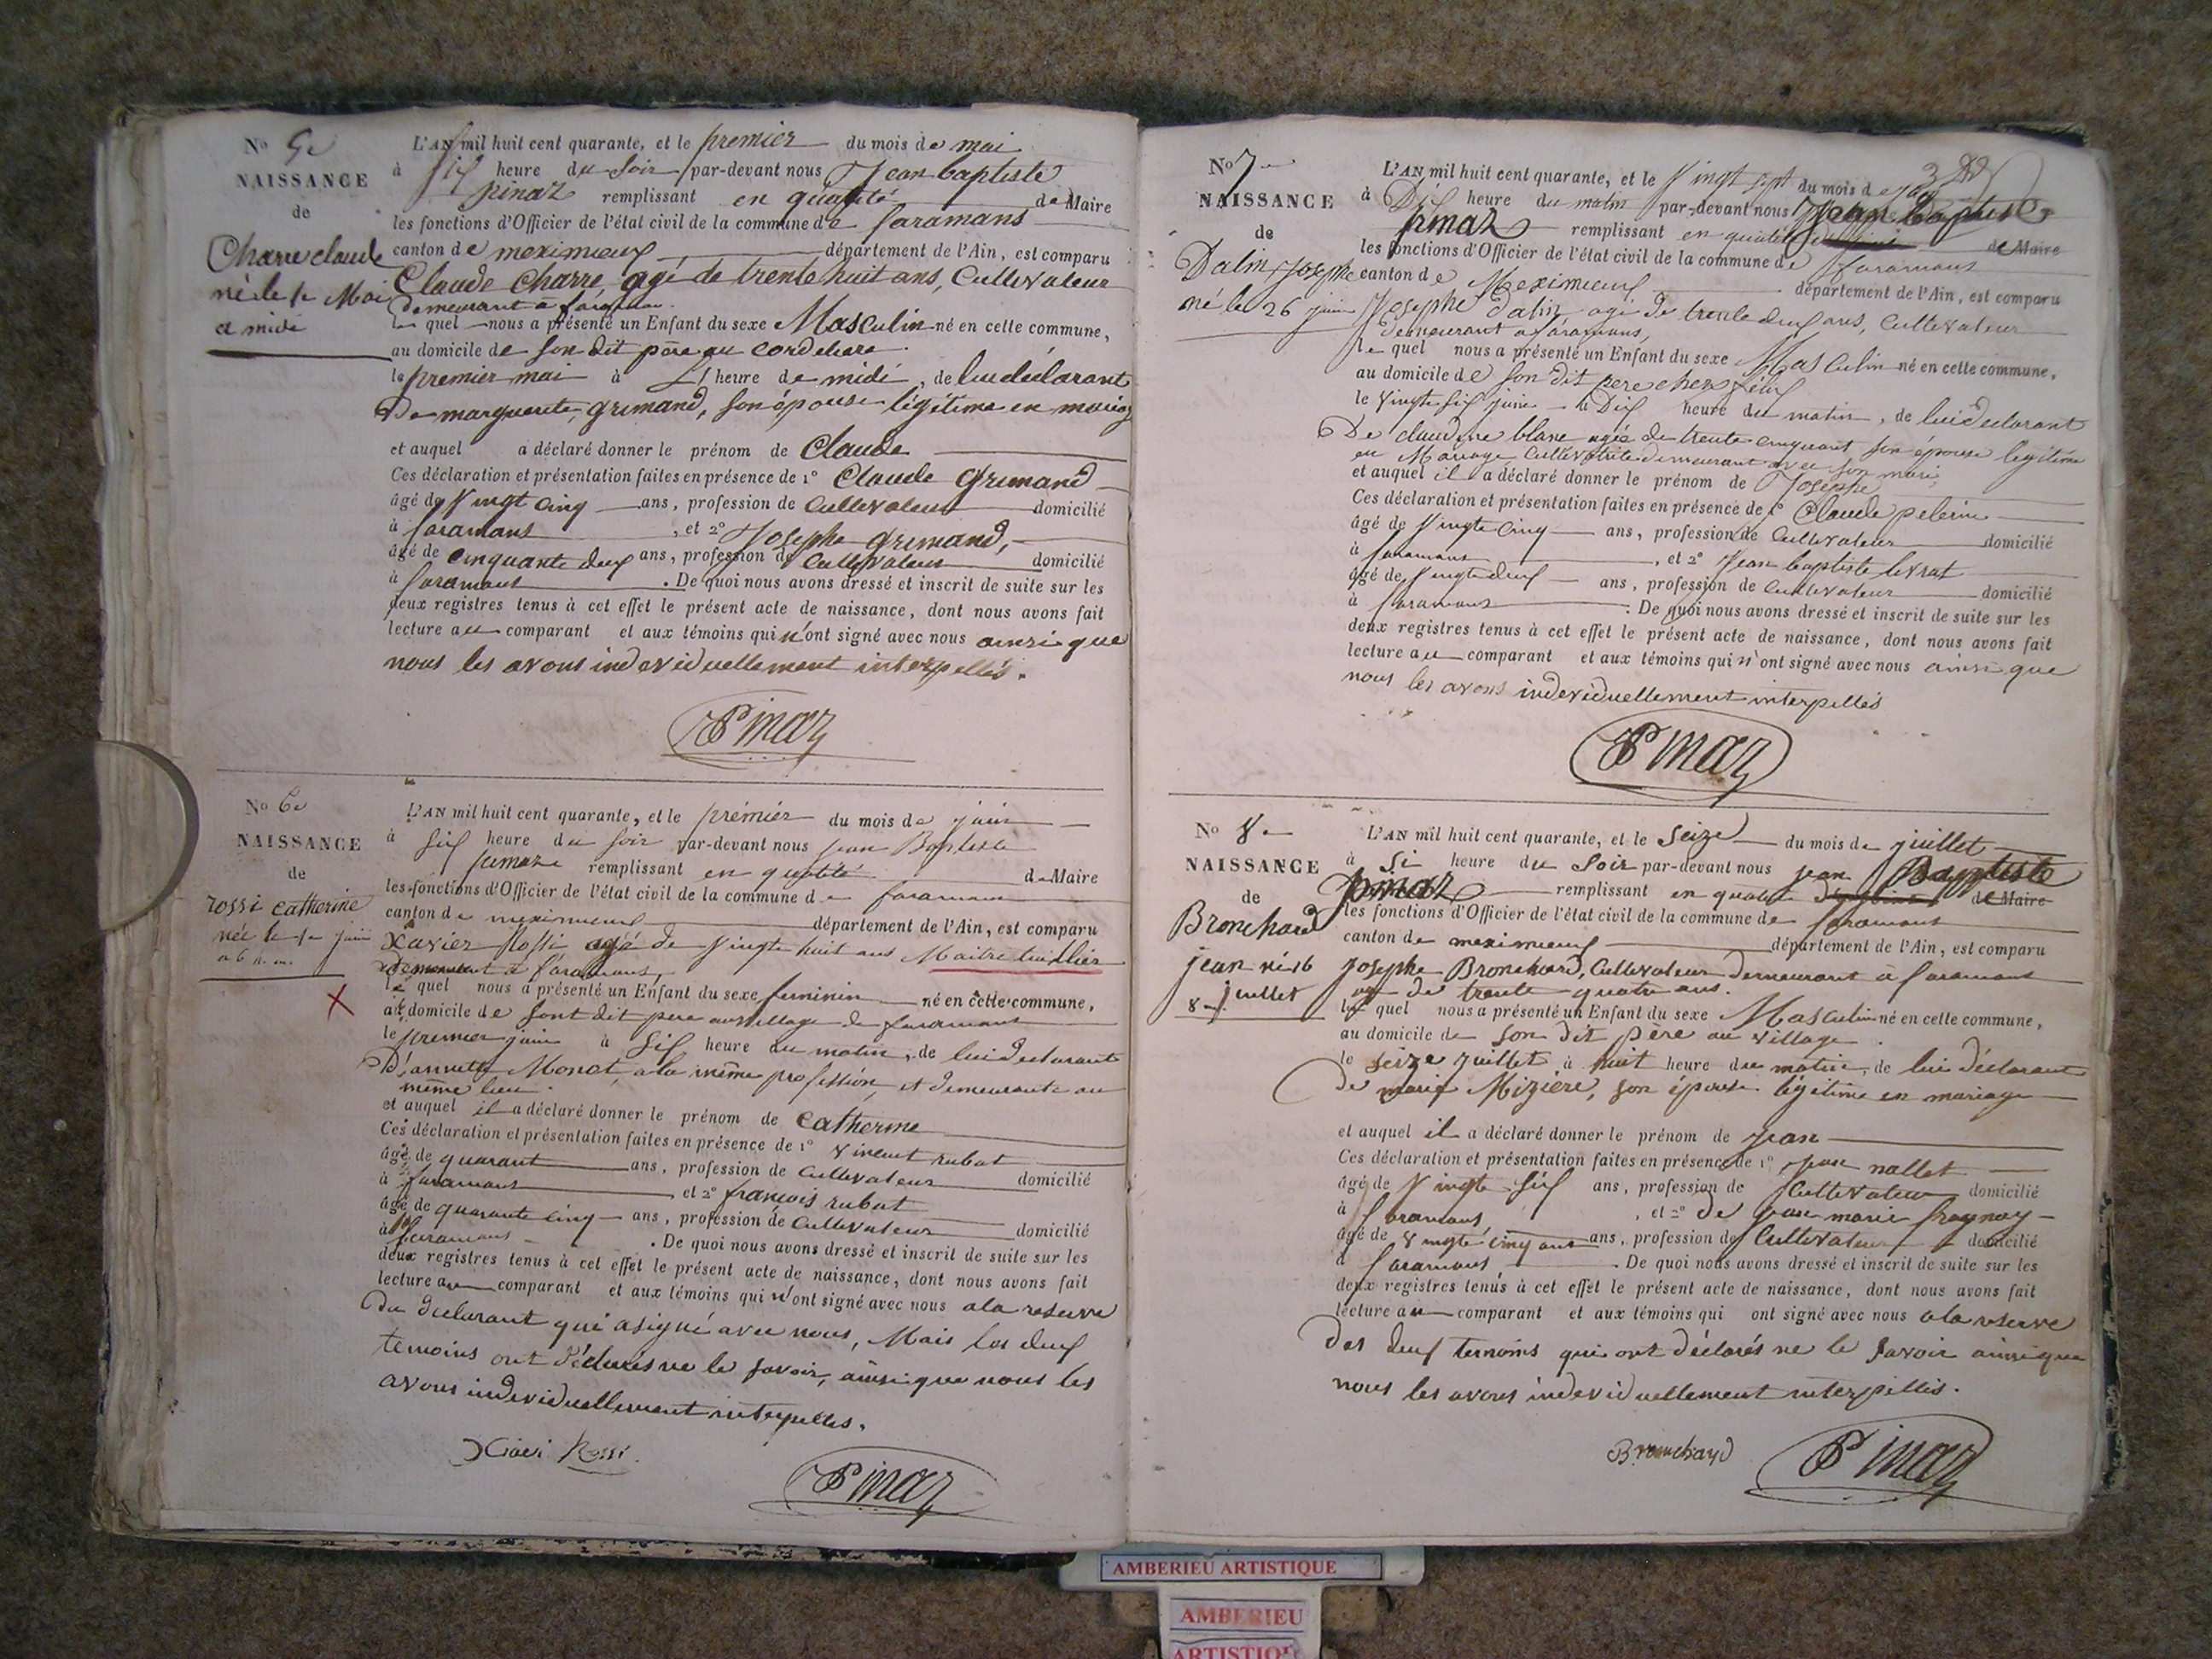 No 5e
NAISSANCE
de
Charre claude
né le 1er Mai
a midi
L'AN mil huit cent quarante, et le premier du mois de mai
à six heure du Soir par-devant nous Jean baptiste
pinaz remplissant en qualité de Maire
les fonctions d'Officier de l'état civil de la commune de faramans
canton de meximieux département de l'Ain, est comparu
Claude Charre, agé de trente huit ans, Cultivateur
demeurant à faramans
le quel nous a présenté un Enfant du sexe Masculin né en cette commune,
au domicile de son dit père au Cordeliere
le premier mai à heure de midi, de lui déclarant
De marguerite grimand, son épouse légitime en mariage
et auquel a déclaré donner le prénom de Claude
Ces déclaration et présentation faites en présence de 1º Claude grimand
âgé de Vingt Cinq ans, profession de Cultivateur domicilié
à faramans, et 2º Josephe grimand,
âgé de cinquante deux ans, profession de Cultivateur domicilié
à faramans. De quoi nous avons dressé et inscrit de suite sur les
deux registres tenus à cet effet le présent acte de naissance, dont nous avons fait
lecture au comparant et aux témoins qui n'ont signé avec nous ainsi que
nous les avons individuellement interpellés.
Pinaz
No 6e
NAISSANCE
de
rossi Catherine
née le 1er juin
a 6 h. m.
L'AN mil huit cent quarante, et le prémier du mois de juin
à six heure du soir par-devant nous jean Baptiste
pinaz remplissant en qualité de Maire
les fonctions d'Officier de l'état civil de la commune de faramans
canton de meximieux département de l'Ain, est comparu
Xavier Rossi agé de Vingte huit ans Maitre tuillier
demeurant à faramans,
le quel nous a présenté un Enfant du sexe feminin né en cette commune,
au domicile de sont dit pere au village de faramans
le premier juin à Six heure du matin, de lui déclarant
D'annette Monet, a la même profession, et demeurante au
même lieu.
et auquel il a déclaré donner le prénom de Catherine
Ces déclaration et présentation faites en présence de 1º Vincent rubat
âgé de quarant ans, profession de Cultivateur domicilié
à faramans et 2º françois rubat
âgé de quarante cinq ans, profession de Cultivateur domicilié
à faramans. De quoi nous avons dressé et inscrit de suite sur les
deux registres tenus à cet effet le présent acte de naissance, dont nous avons fait
lecture au comparant et aux témoins qui n'ont signé avec nous a la reserve
du déclarant qui a signé avec nous, Mais les deux
témoins ont déclarés ne le savoir, ainsi que nous les
avons individuellement interpellés.
Rossi
Pinaz
No 7e
NAISSANCE
de
Dalin Josephe
né le 26 juin
L'AN mil huit cent quarante, et le Vingt sept du mois de
à Dix heure du matin par-devant nous Jean Baptiste
pinaz remplissant en qualité de Maire
les fonctions d'Officier de l'état civil de la commune de faramans
canton de Meximieux département de l'Ain, est comparu
Josephe Dalin agé de trente deux ans, Cultivateur
demeurant a faramans,
le quel nous a présenté un Enfant du sexe Masculin né en cette commune,
au domicile de son dit pere chez
le Vingte six juin à Dix heure du matin, de lui déclarant
De claudine blanc agée de trente cinq ans, son épouse légitime
en Mariage Cultivatrice demeurant avec son mari
et auquel il a déclaré donner le prénom de Josephe
Ces déclaration et présentation faites en présence de 1º Claude pelerin
âgé de Vingte cinq ans, profession de Cultivateur domicilié
à faramans, et 2º Jean baptiste levrat
âgé de Vingte deux ans, profession de Cultivateur domicilié
à faramans. De quoi nous avons dressé et inscrit de suite sur les
deux registres tenus à cet effet le présent acte de naissance, dont nous avons fait
lecture au comparant et aux témoins qui n'ont signé avec nous ainsi que
nous les avons individuellement interpellés
Pinaz
No 8e
NAISSANCE
de
Bronchard
jean né 16
juillet
L'AN mil huit cent quarante, et le Seize du mois de juillet
à Si heure du Soir par-devant nous jean Baptiste
pinaz remplissant en qualité de Maire
les fonctions d'Officier de l'état civil de la commune de faramans
canton de meximieux département de l'Ain, est comparu
Josephe Bronchard, Cultivateur demeurant a faramans
agé de trente quatre ans.
le quel nous a présenté un Enfant du sexe Masculin né en cette commune,
au domicile de son dit père au village.
le seize juillet à huit heure du matin, de lui déclarant
De marie Miziere, son épouse légitime en mariage
et auquel il a déclaré donner le prénom de Jean
Ces déclaration et présentation faites en présence de 1º Jean nallet
âgé de Vingte Six ans, profession de Cultivateur domicilié
à faramans, et 2º de Jean marie
âgé de Vingte cinq ans ans, profession de Cultivateur domicilié
à faramans. De quoi nous avons dressé et inscrit de suite sur les
deux registres tenus à cet effet le présent acte de naissance, dont nous avons fait
lecture au comparant et aux témoins qui ont signé avec nous a la réserve
des deux temoins qui ont déclarés ne le savoir ainsi que
nous les avons individuellement interpellés.
Bronchard
Pinaz
AMBERIEU ARTISTIQUE
AMBERIEU
ARTISTIQUE